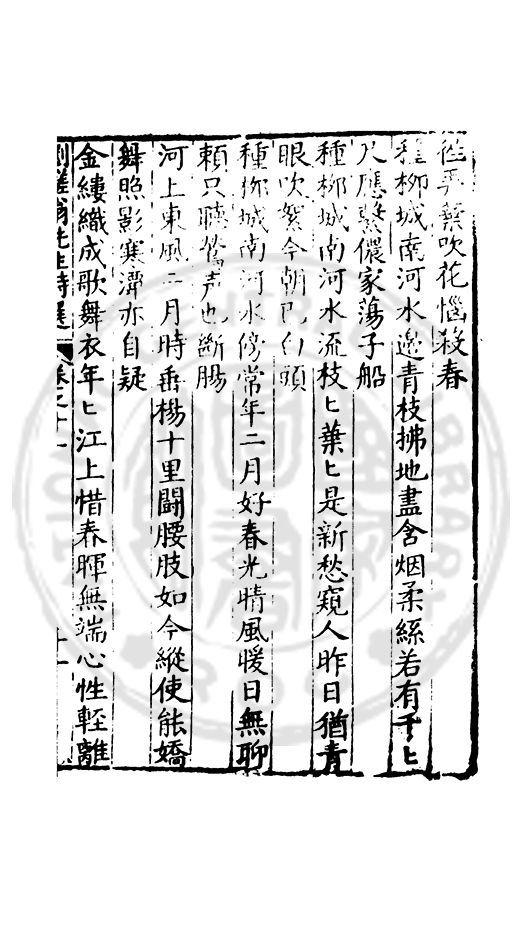 吹花惱殺春
種柳城南河水邊青枝拂地盡含烟柔絲若有千匕
尺應繫儂家蕩子船
種柳城南河水流枝匕葉匕是新愁窺人昨日猶青
眼吹絮今朝已白頭
種柳城南河水傍常年二月好春光晴風暖日無聊
頼只聽鶯声也斷腸
河上東風二月時垂楊十里鬪腰肢如今縱使能嬌
舞照影寒潭亦自疑
金縷織成歌舞衣年匕江上惜春暉無端心性輕離